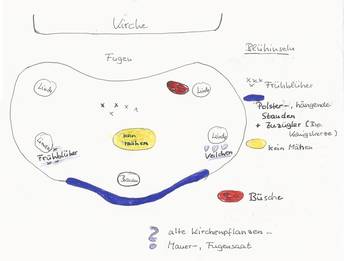 Kirche
Fugen
Linde
Linde
kein
mähen
Linde
Frühblüher
Linde
Veilchen
Brunnen
Blühinseln
xxx Frühblüher
Polster-, hängende
Stauden
+ Zuzügler (z.B.
Königskerze)
kein Mähen
Büsche
alte Kirchenpflanzen
Mauer-, Fugensaat